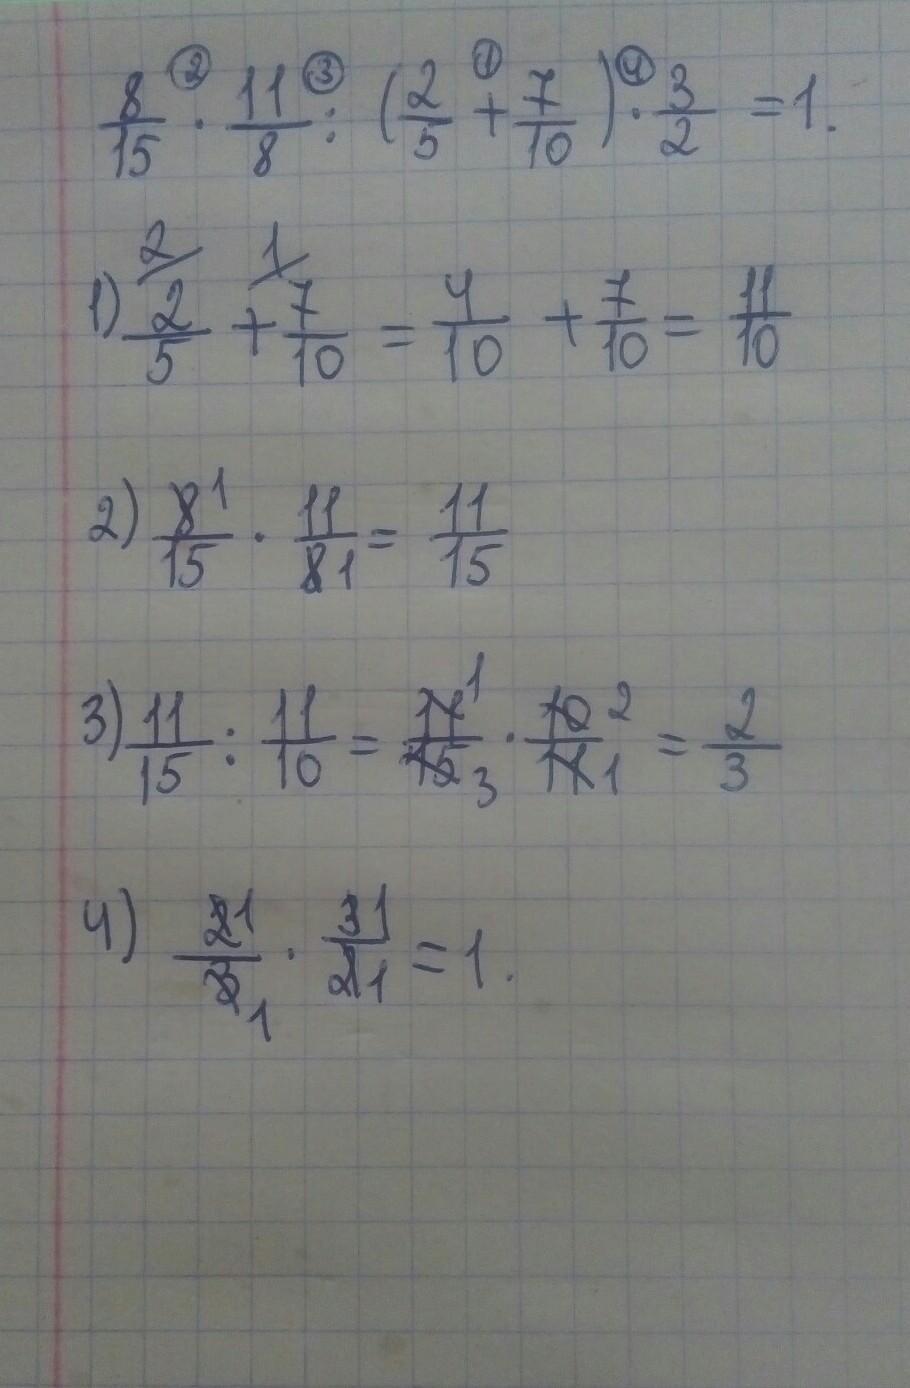 8/15 ② · 11/8 ③ : (2/5 ① + 7/10) ④ · 3/2 = 1.
1) 2/ 2/5 + 1/ 7/10 = 4/10 + 7/10 = 11/10
2) 8 1/15 · 11/8 1 = 11/15
3) 11/15 : 11/10 = 11 1/15 3 · 10 2/11 1 = 2/3
4) 2 1/3 1 · 3 1/2 1 = 1.